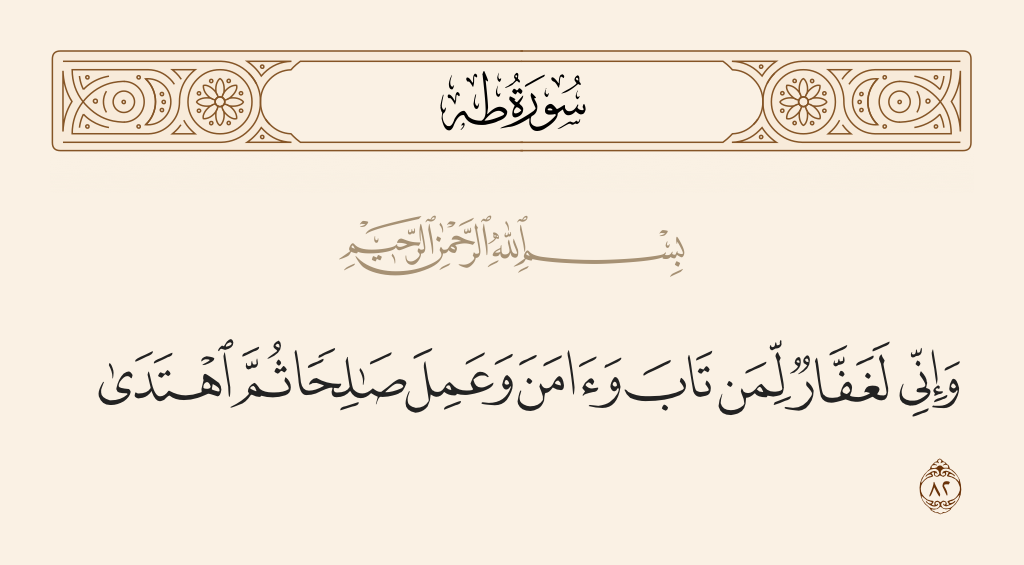 سُورَةُ طه
بِسْمِ ٱللَّهِ ٱلرَّحْمَٰنِ ٱلرَّحِيمِ
وَإِنِّى لَغَفَّارٌ لِّمَن تَابَ وَءَامَنَ وَعَمِلَ صَـٰلِحًا ثُمَّ ٱهْتَدَىٰ
٨٢